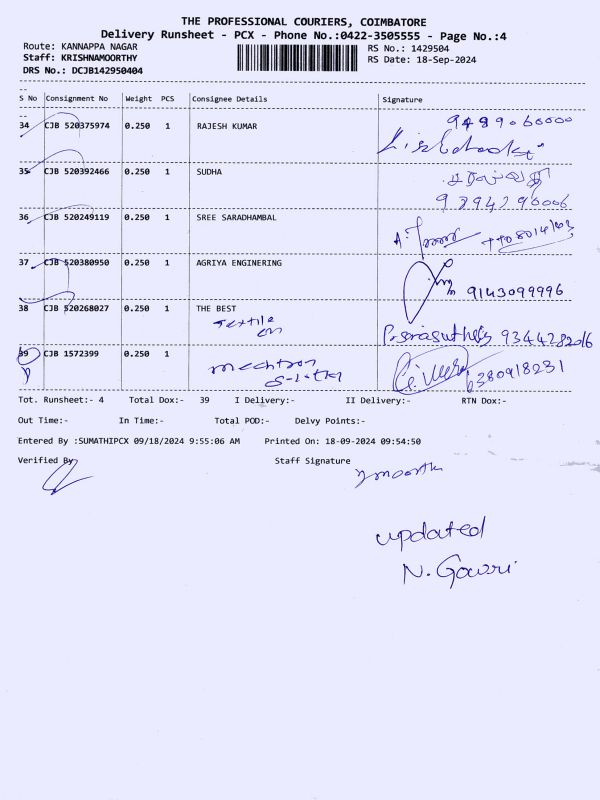 THE PROFESSIONAL COURIERS, COIMBATORE
Delivery Runsheet - PCX - Phone No.:0422-3505555 - Page No.:4
Route: KANNAPPA NAGAR
RS No.: 1429504
Staff: KRISHNAMOORTHY
RS Date: 18-Sep-2024
DRS No.: DCJB142950404
S No Consignment No Weight PCS Consignee Details Signature
34 CJB 520375974 0.250 1 RAJESH KUMAR
9489060000
35 CJB 520392466 0.250 1 SUDHA
9894296006
36 CJB 520249119 0.250 1 SREE SARADHAMBAL
37 CJB 520380950 0.250 1 AGRIYA ENGINERING
9143099996
38 CJB 520268027 0.250 1 THE BEST
Textile
9344282016
39 CJB 1572399 0.250 1
6380918231
Tot. Runsheet:- 4 Total Dox:- 39 I Delivery:- II Delivery:- RTN Dox:-
Out Time:- In Time:- Total POD:- Delvy Points:-
Entered By :SUMATHIPCX 09/18/2024 9:55:06 AM Printed On: 18-09-2024 09:54:50
Verified By Staff Signature
updated
N. Gowri